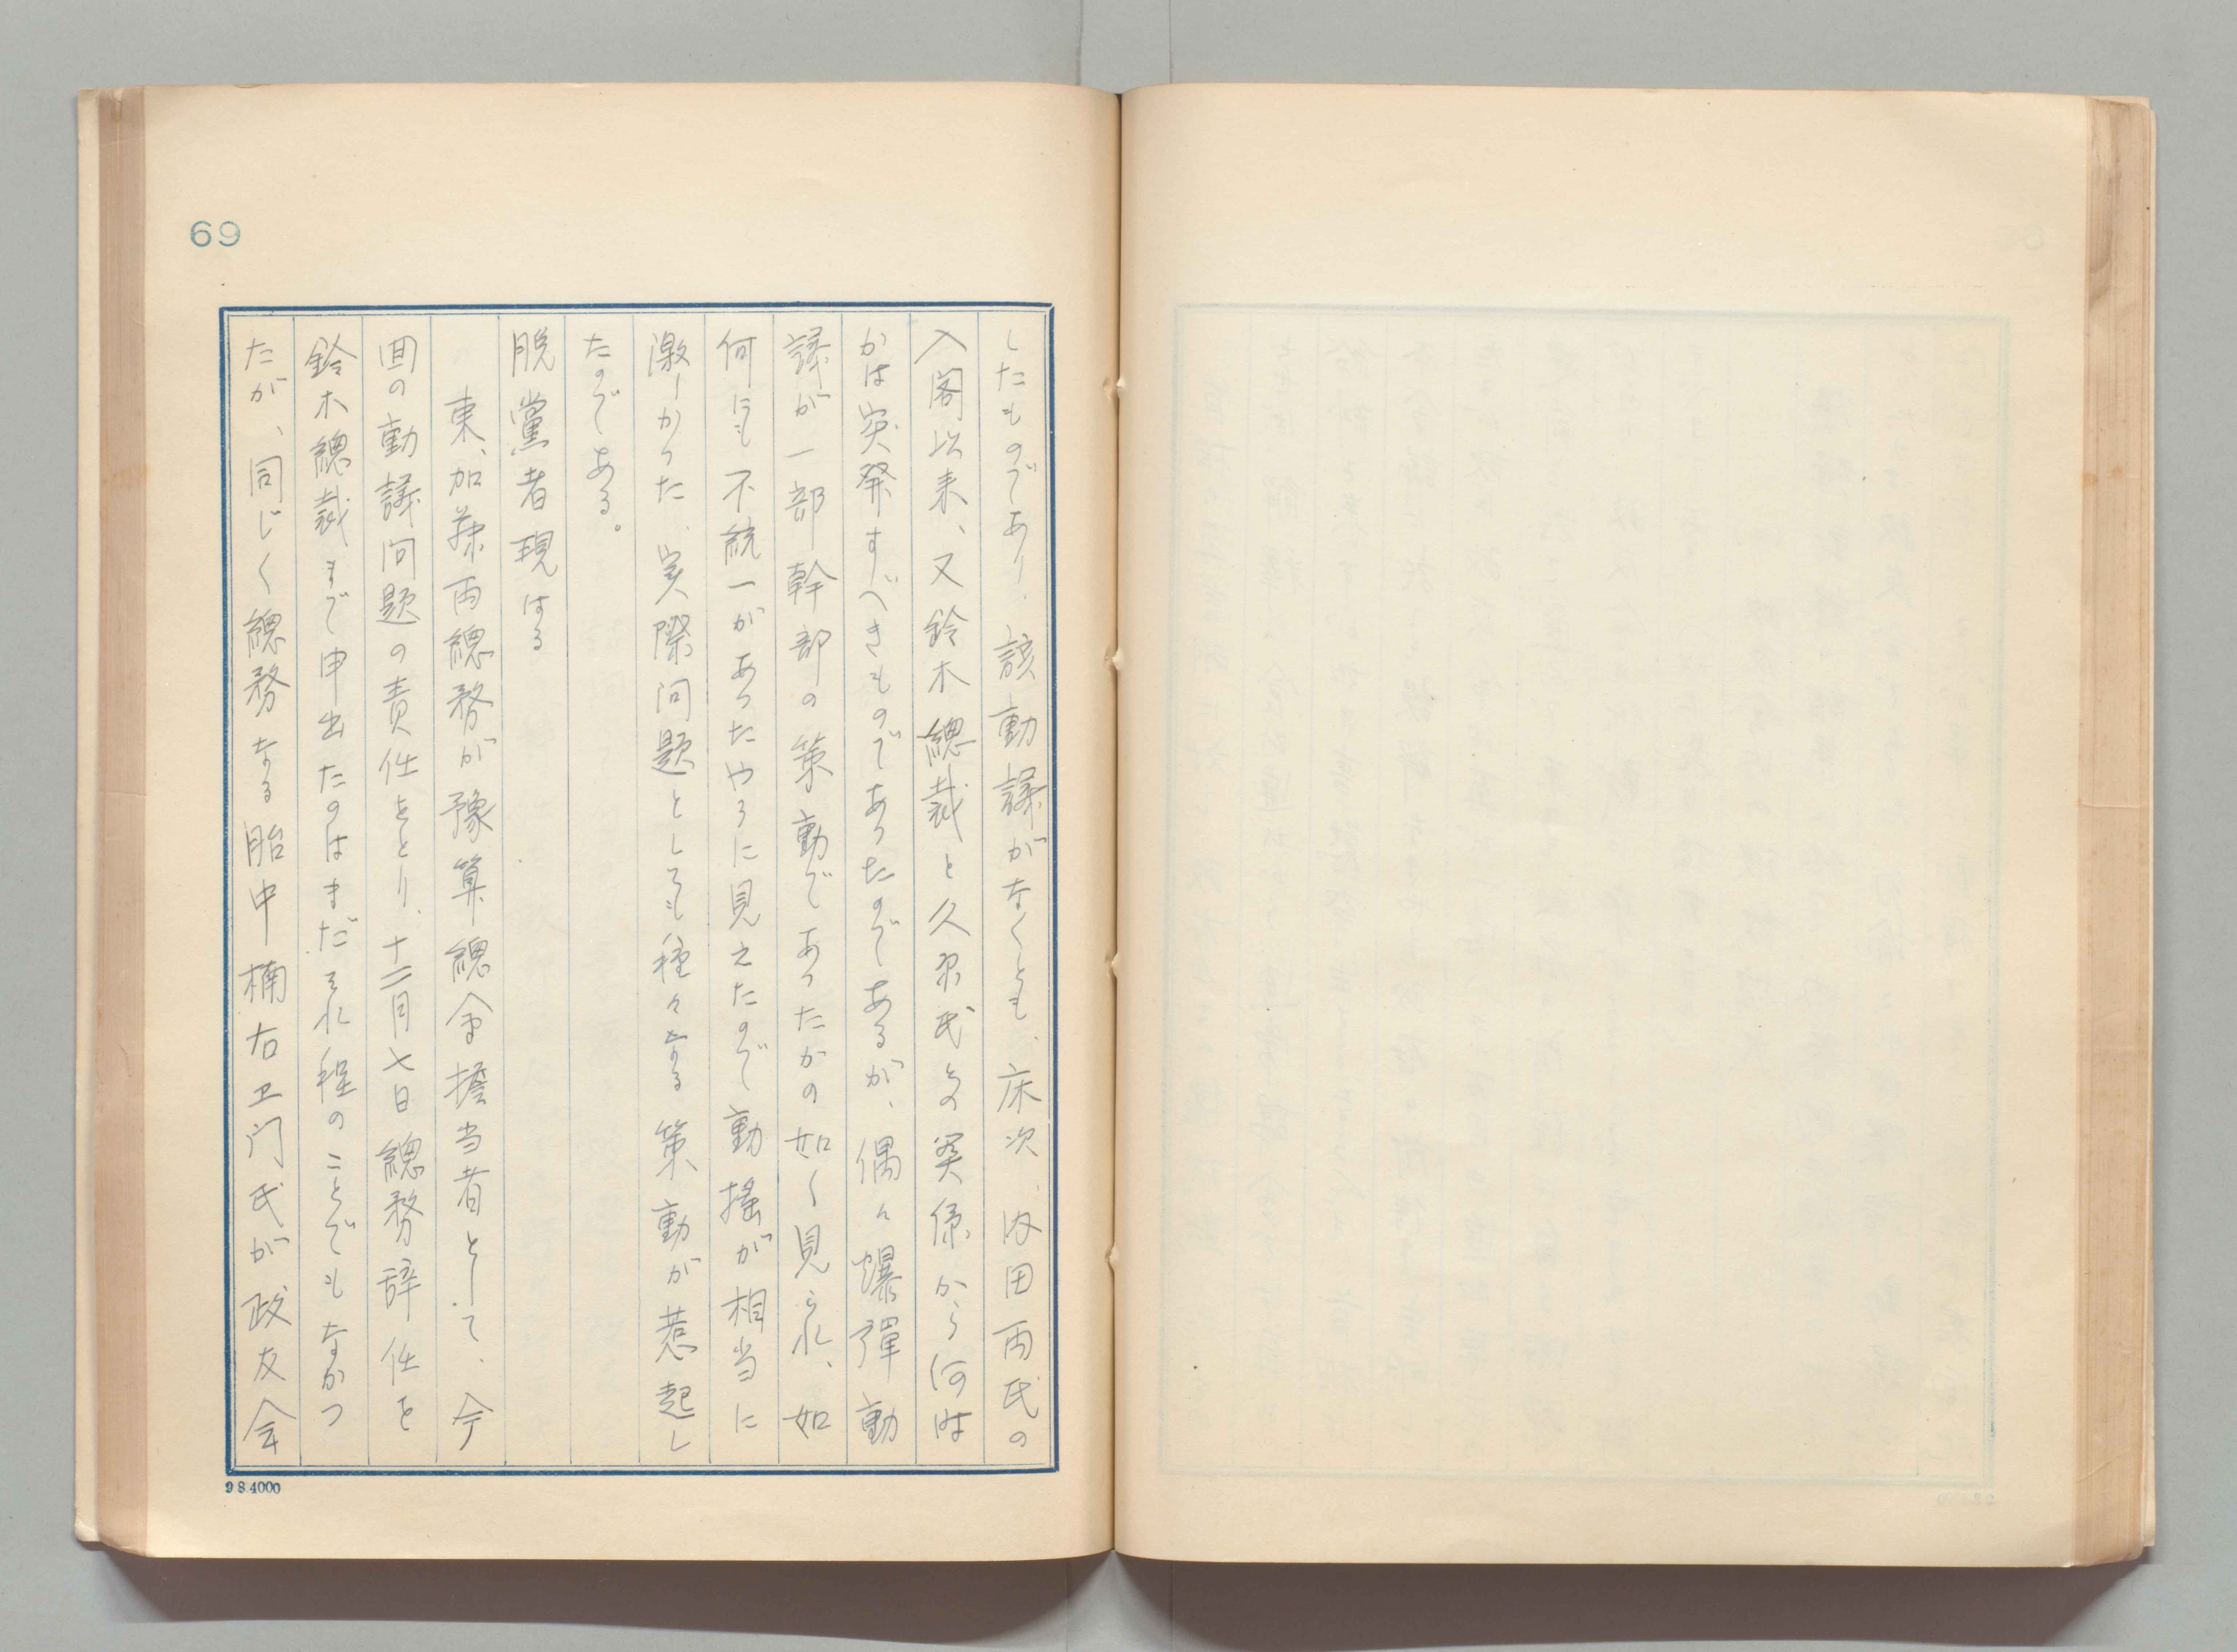 69
したものであり、該動議がなくとも、床次、内田両氏の
入閣以来、又鈴木總裁と久原氏との関係から何時
かは突発すべきものであったのであるが、偶々爆弾動
議が一部幹部の策動であったかの如く見られ、如
何にも不統一があったやうに見えたので動揺が相当に
激しかった、実際問題としても種々なる策動が惹起し
たのである。
脱黨者現はる
東、加藤両總務が豫算總会擔当者として、今
回の動議問題の責任をとり、十二月七日總務辞任を
鈴木總裁まで申出たのはまだそれ程のことでもなかつ
たが、同じく總務なる胎中楠右エ門氏が政友会
98.4000